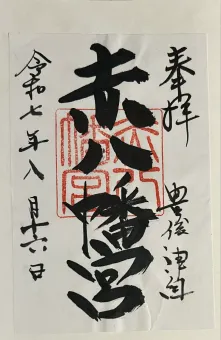 奉拝
豊後津留
赤八幡宮
令和七年八月十六日